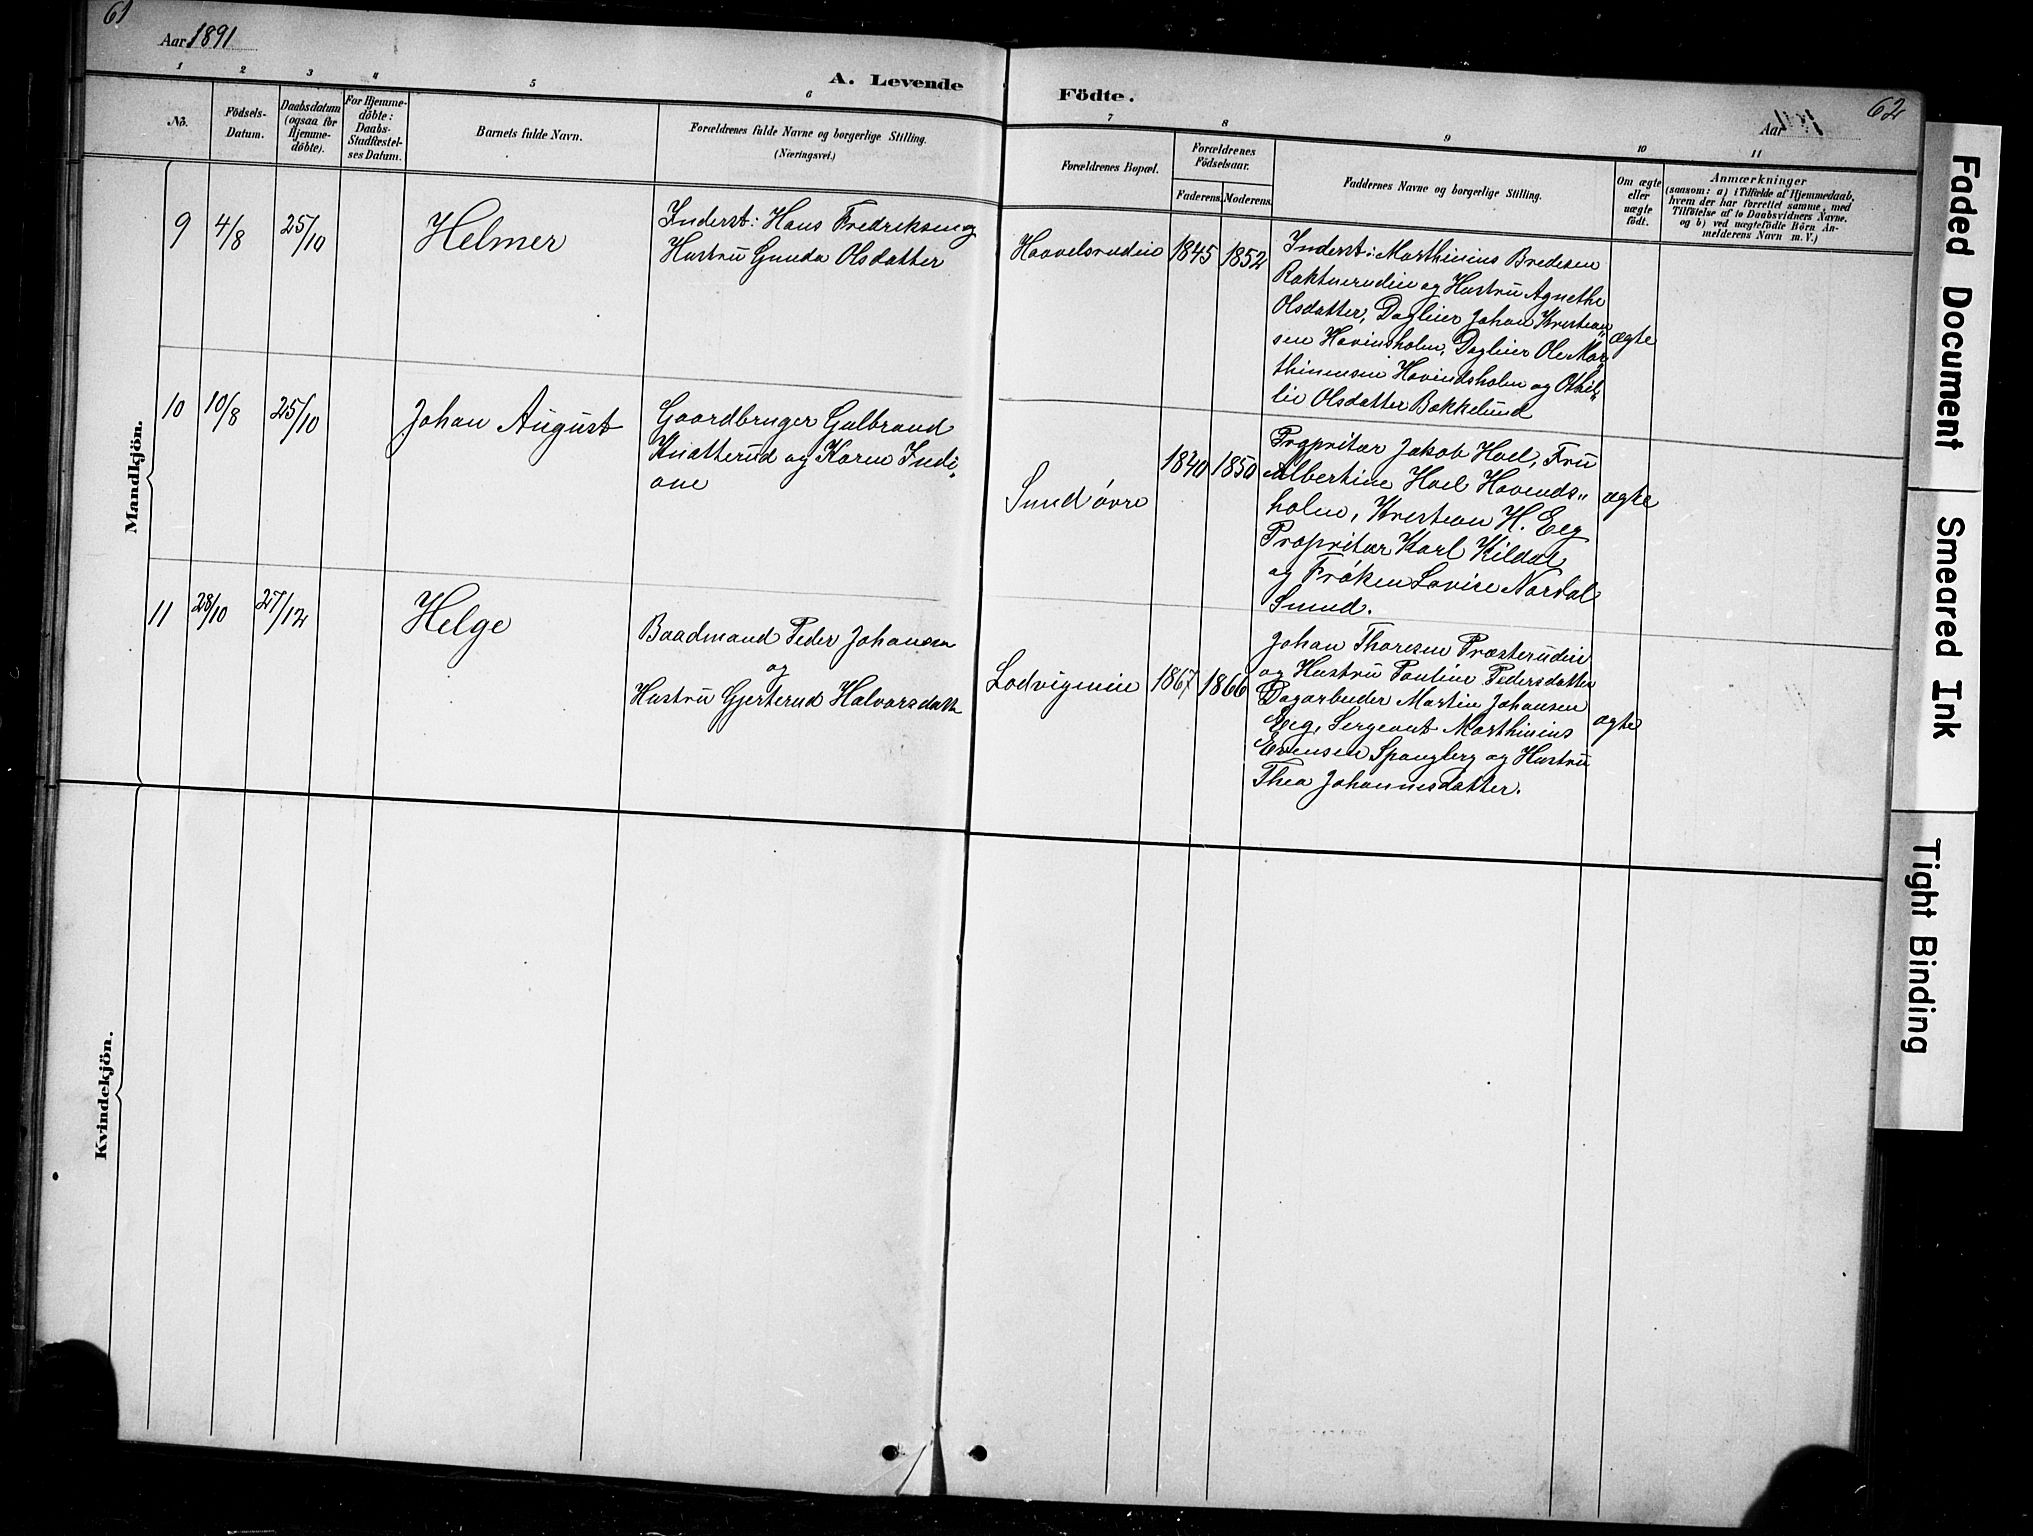 61
Aar 1891
A. Levende
Födte.
Aar
62
1
2
3
4
5
6
7
8
9
10
11
No.
Födsels-
Datum.
Daabsdatum
(ogsaa for
Hjemme-
döbte).
For Hjemme-
döbte:
Daabs-
Stadfæstel-
ses Datum.
Barnets fulde Navn.
Forældrenes fulde Navne og borgerlige Stilling.
(Næringsvei.)
Forældrenes Bopæl.
Forældrenes
Födselsaar.
Faderens.
Moderens.
Faddernes Navne og borgerlige Stilling.
Om ægte
eller
uægte
födt.
Anmærkninger
(saasom: a) i Tilfælde af Hjemmedaab,
hvem der har forrettet samme, med
Tilföielse af to Daabsvidners Navne.
og b) ved uægtefödte Börn An-
melderens Navn m. V.)
Mandkjön.
9
4/8
25/10
Helmer
Inderst: Hans Fredriksen og
Hustru Gunda Olsdatter
Haavelsrudeie
1845
1852
Inderst: Marthinius Bredesen
Raknerudeie og Hustru Agnethe
Olsdatter, Dagleier Johan Kristian"
sen Hovinsholm, Dagleier Ole Mar"
thinensen Hovindsholm og Othil"
lie Olsdatter Bakkelund
ægte
10
10/8
25/10
Johan August
Gaardbruger Gulbrand
Knatterud og Karen Indi"
ane
Sund övre
1840
1850
Propritær Jakob Hoel, Fru
Albertine Hoel Hovends"
holm, Kristian H. Eeg
Propritær Karl Kildal
og Fröken Lovise Nordal
Sund.
ægte
11
28/10
27/12
Helge
Baadmand Peder Johansen
og
Hustru Gjerterud Halvorsdatt
Lodvigseie
1867
1866
Johan Thoresen Præsterudeie
og Hustru Pauline Pedersdatter
Dagarbeider Martin Johansen
Eeg, Sergeant Marthinius
Evensen Spangberg og Hustru
Thea Johannesdatter.
ægte
Kvindekjön.
Faded Document
Smeared Ink
Tight Binding